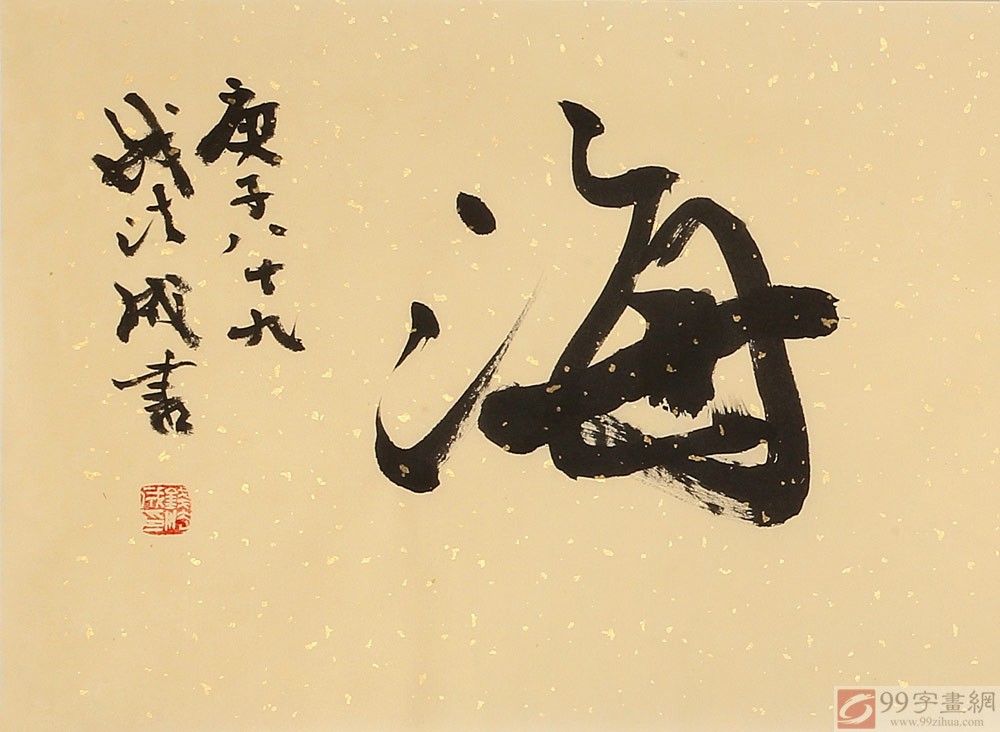 海
庚子八十九
钱法成書
錢法成印
99字畫網
www.99zihua.com